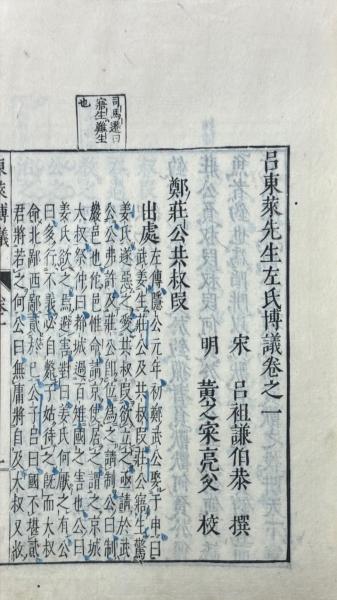 司馬遷曰
寤生難生
也
呂東萊先生左氏博議卷之一
宋 呂祖謙伯恭 撰
明 黃之宷亮父 校
鄭莊公共叔段
出處
左傳隱公元年初鄭武公娶于申曰
武姜生莊公及共叔段莊公寤生驚
姜氏遂惡之愛共叔段欲立之亟請於武
公公弗許及莊公即位為之請制公曰制
巖邑也他邑惟命請京使居之謂之京城
大叔祭仲曰都城過百雉國之害也公曰
姜氏欲之焉避害對曰姜氏何厭之有公
曰多行不義必自斃子姑待之既而大叔
命北鄙西鄙貳於己公子呂曰國不堪貳
君將若之何公曰無庸將自及大叔又收
東萊博議 卷一